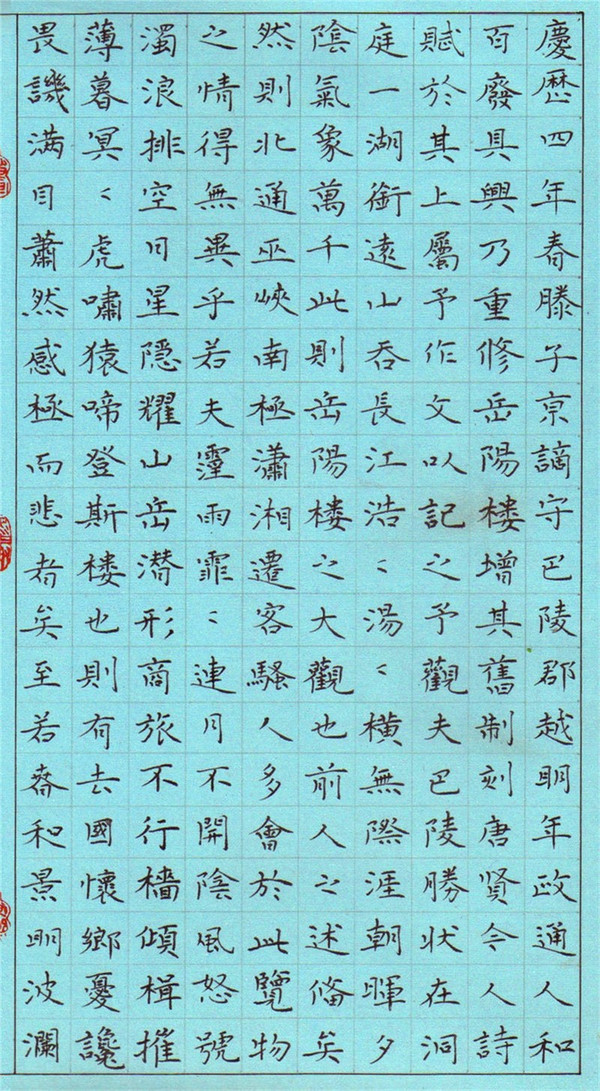 慶歷四年春滕子京謫守巴陵郡越明年政通人和
百廢具興乃重修岳陽楼增其舊制刻唐賢今人詩
賦於其上屬予作文以記之予觀夫巴陵勝状在洞
庭一湖銜遠山吞長江浩〻湯〻橫無際涯朝暉夕
陰氣象萬千此則岳陽楼之大觀也前人之述俻矣
然則北通巫峽南極瀟湘遷客騷人多會於此覽物
之情得無異乎若夫霪雨霏〻連月不開陰風怒號
濁浪排空日星隱耀山岳潛形商旅不行檣傾楫摧
薄暮冥〻虎嘯猿啼登斯楼也則有去國懷鄉憂讒
畏譏滿目蕭然感極而悲者矣至若春和景明波瀾